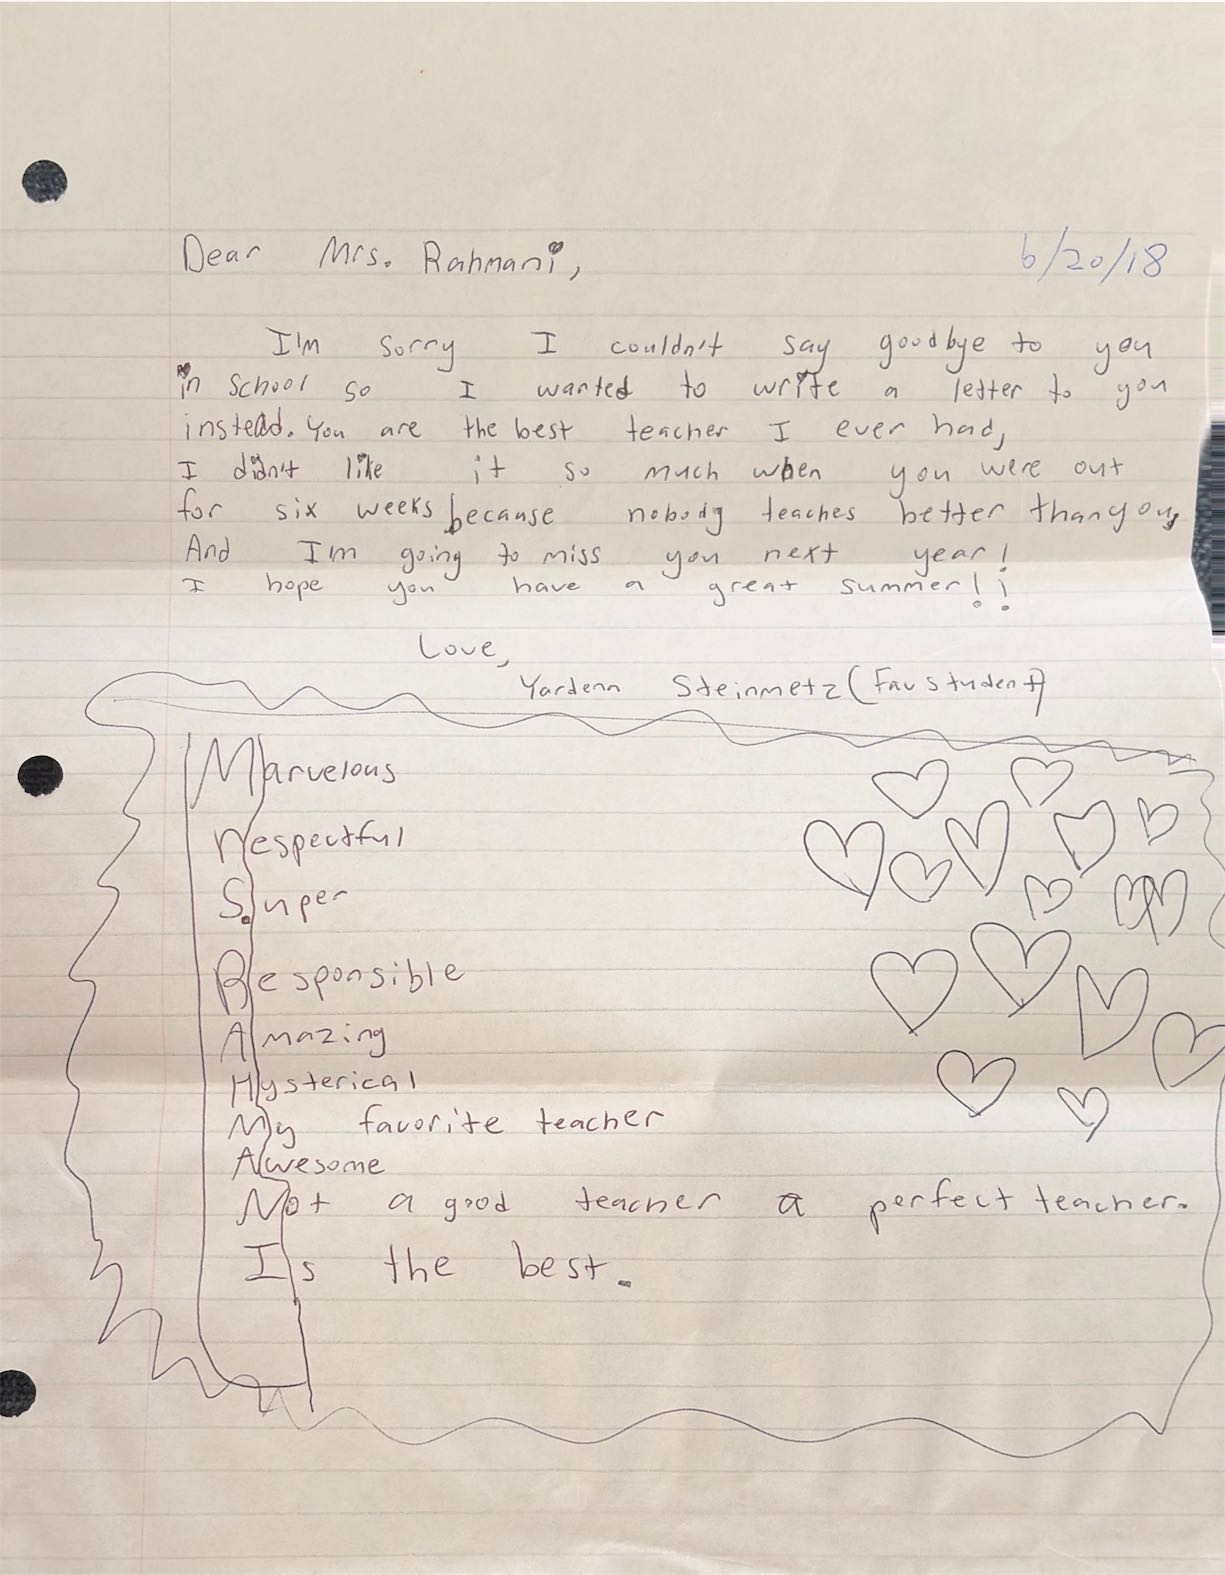 Dear Mrs. Rahmani, 6/20/18
I'm sorry I couldn't say goodbye to you
in school so I wanted to write a letter to you
instead. You are the best teacher I ever had,
I didn't like it so much when you were out
for six weeks because nobody teaches better than you,
And I'm going to miss you next year!
I hope you have a great summer!!
Love,
Yardena Steinmetz (Fav student)
Marvelous
respectful
S.uper
Responsible
Amazing
Hysterical
My favorite teacher
Awesome
Not a good teacher a perfect teacher.
Is the best.